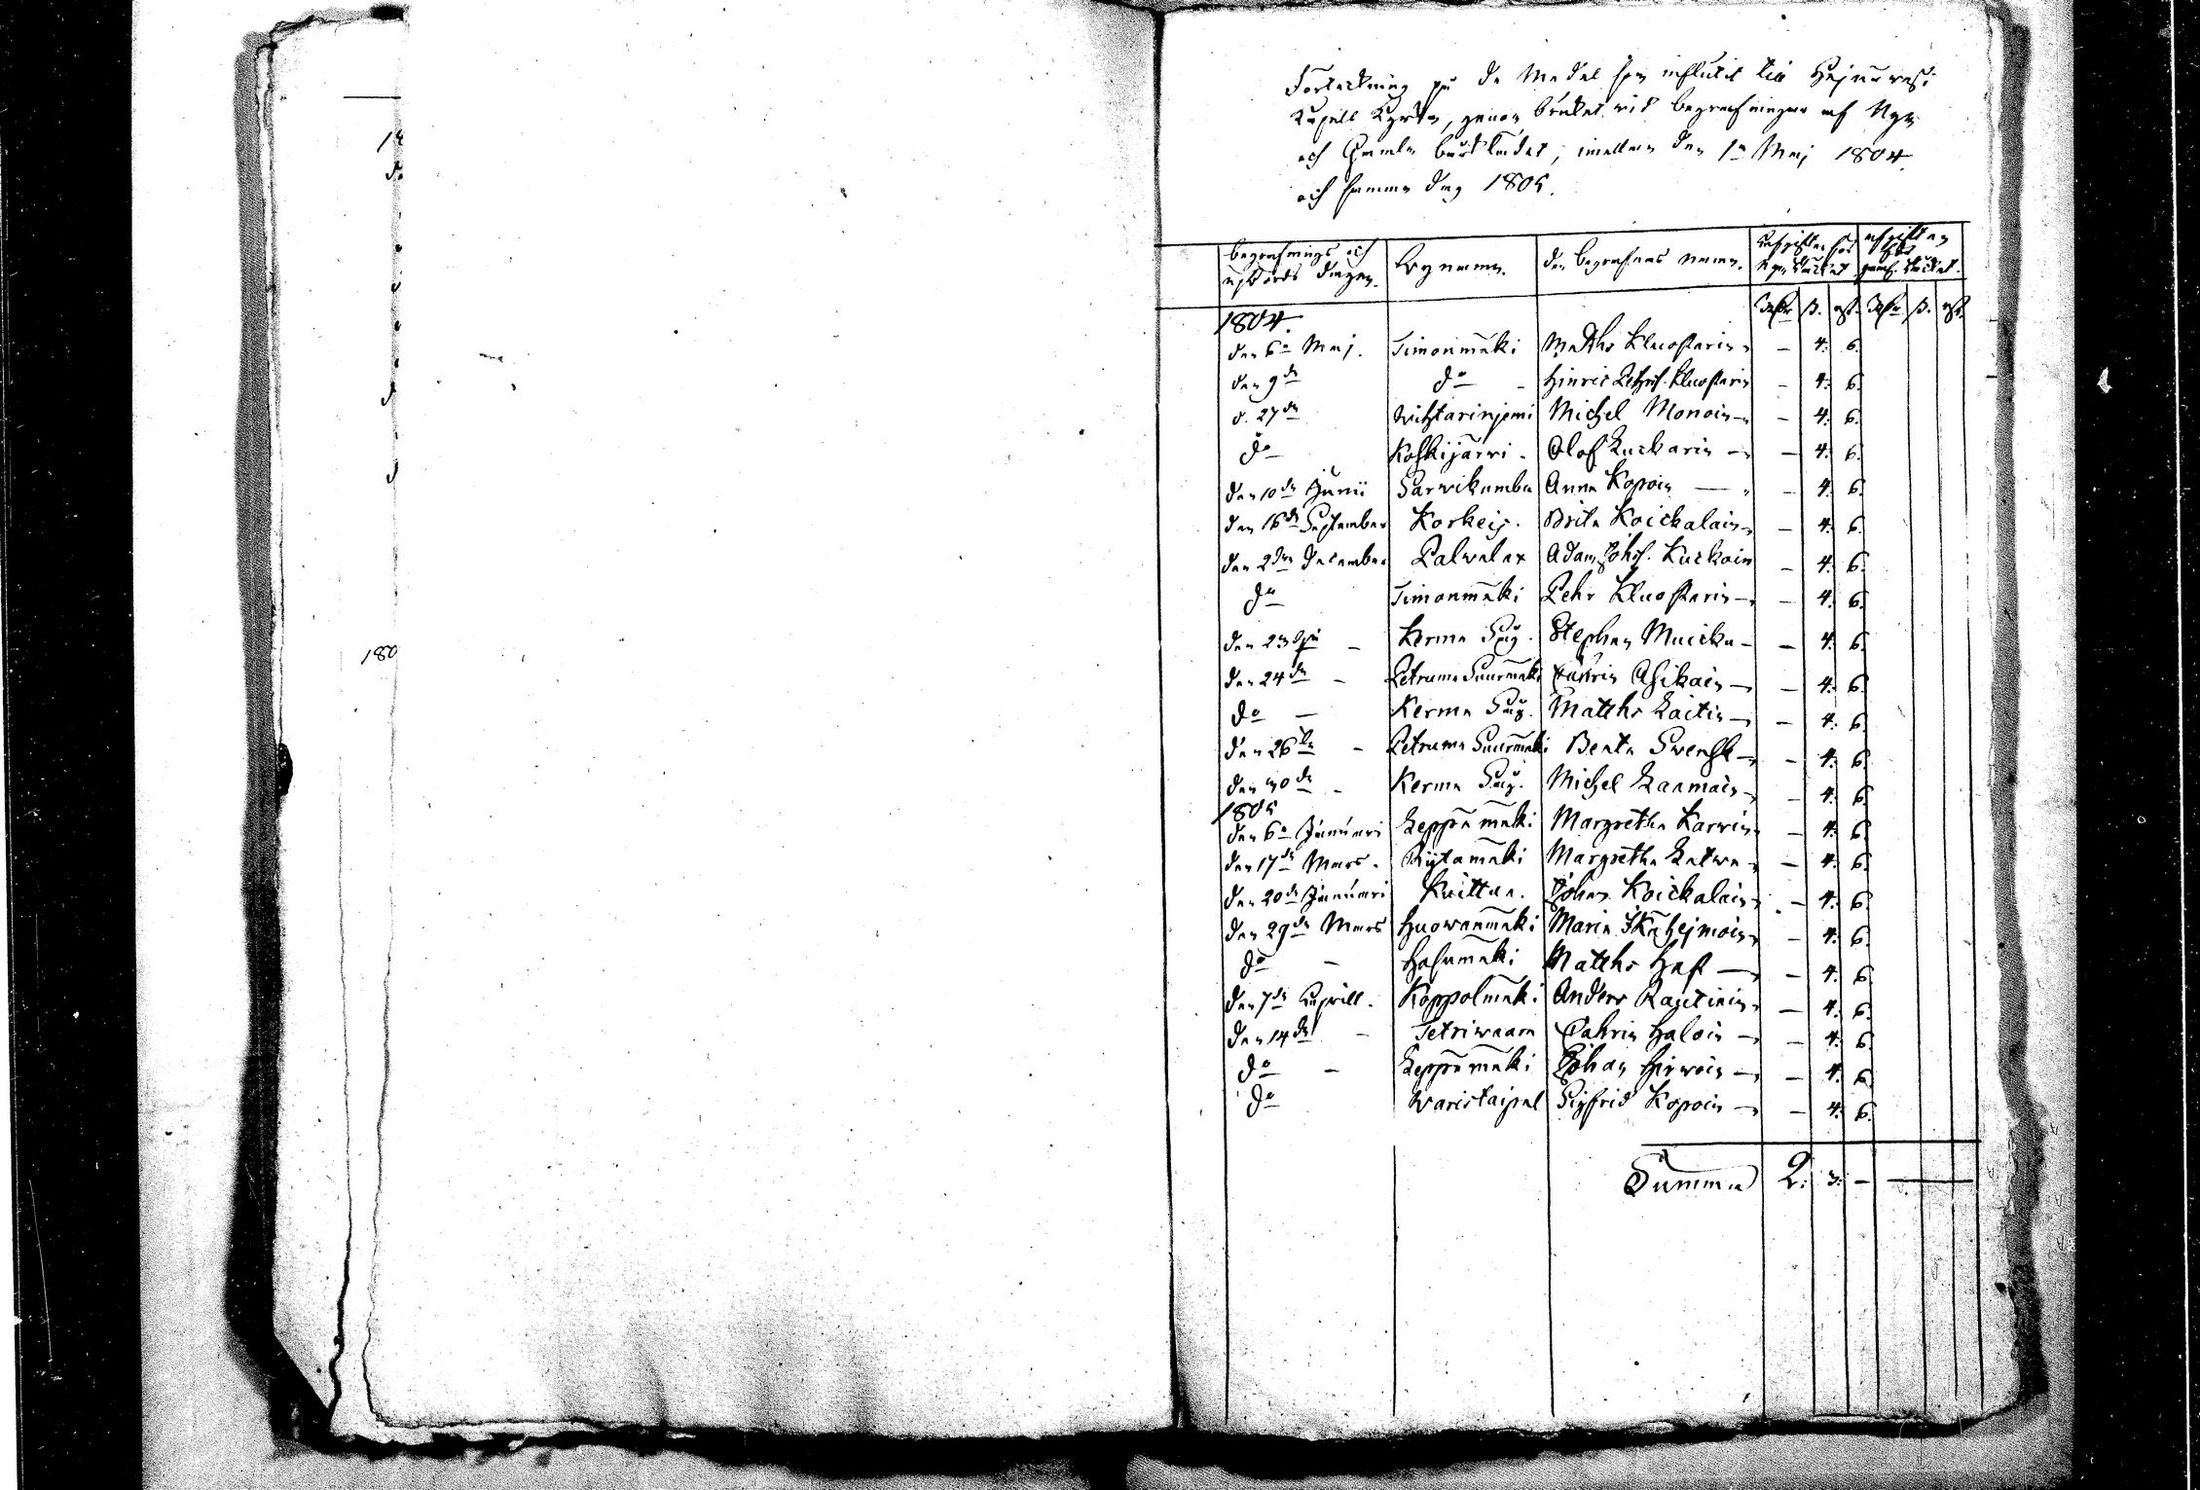 18
do
d
d
180
Förtekning på de Medel som influtit til Heinäwesi
Kapells Kyrka, genom bruket vid begrafningar af Nya
och Gamla bårklädet, imellan den 1a Maj 1804
och samma dag 1805.
begrafnings och upbörds dagen. Bynamn. den begrafnas namn. afgiften för nya klädet afgiften för gaml. klädet.
Rdr ß. rst. Rdr ß. rst.
1804.
den 6te Maj. Timonmäki Matths Kluostarin - 4: 6.
den 9de do - Hinric Pehrs. Kluostarin - 4: 6.
d. 27de Wihtarinjemi Michel Monoin - 4: 6.
do Koskijärwi - Olof Zuckarin - 4: 6.
den 10de Junii Sarwikumbu Anna Kopoin - 4: 6.
den 16de September Korkeis. Brita Koickalain - 4: 6.
den 2dra December Palwalax Adam Johs. Kuckoin - 4: 6.
do Timonmäki Pehr Kluostarin - 4: 6.
den 23dje - Kerma Stephan Muicku - 4: 6.
den 24de - Petruma Suurmäki Cathrin Asikain - 4: 6.
do - Kerma Matths Laitin - 4: 6.
den 26te - Petruma Suurmäki Beata Swensk - 4: 6.
den 30de - Kerma Michel Lanmain - 4: 6.
1805
den 6te Januari Leppämäki Margretha Karwin - 4: 6.
den 17de Mars. Rijtamäki Margretha Latwa - 4: 6.
den 20de Januari Kuittua. Johan Koickalain - 4: 6.
den 29de Mars Huowanmäki Maria Ikäheimoin - 4: 6.
do - Hasumäki Matths Hast - 4: 6.
den 7de Aprill. Koppolmäki Anders Rautiain - 4: 6.
den 14de - Tetriwaara Cahrin Haloin - 4: 6.
do - Leppämäki Johan Hirwoin - 4: 6.
do Waristaipal Sigfrid Kopoin - 4: 6.
Summa 2: 3: - -